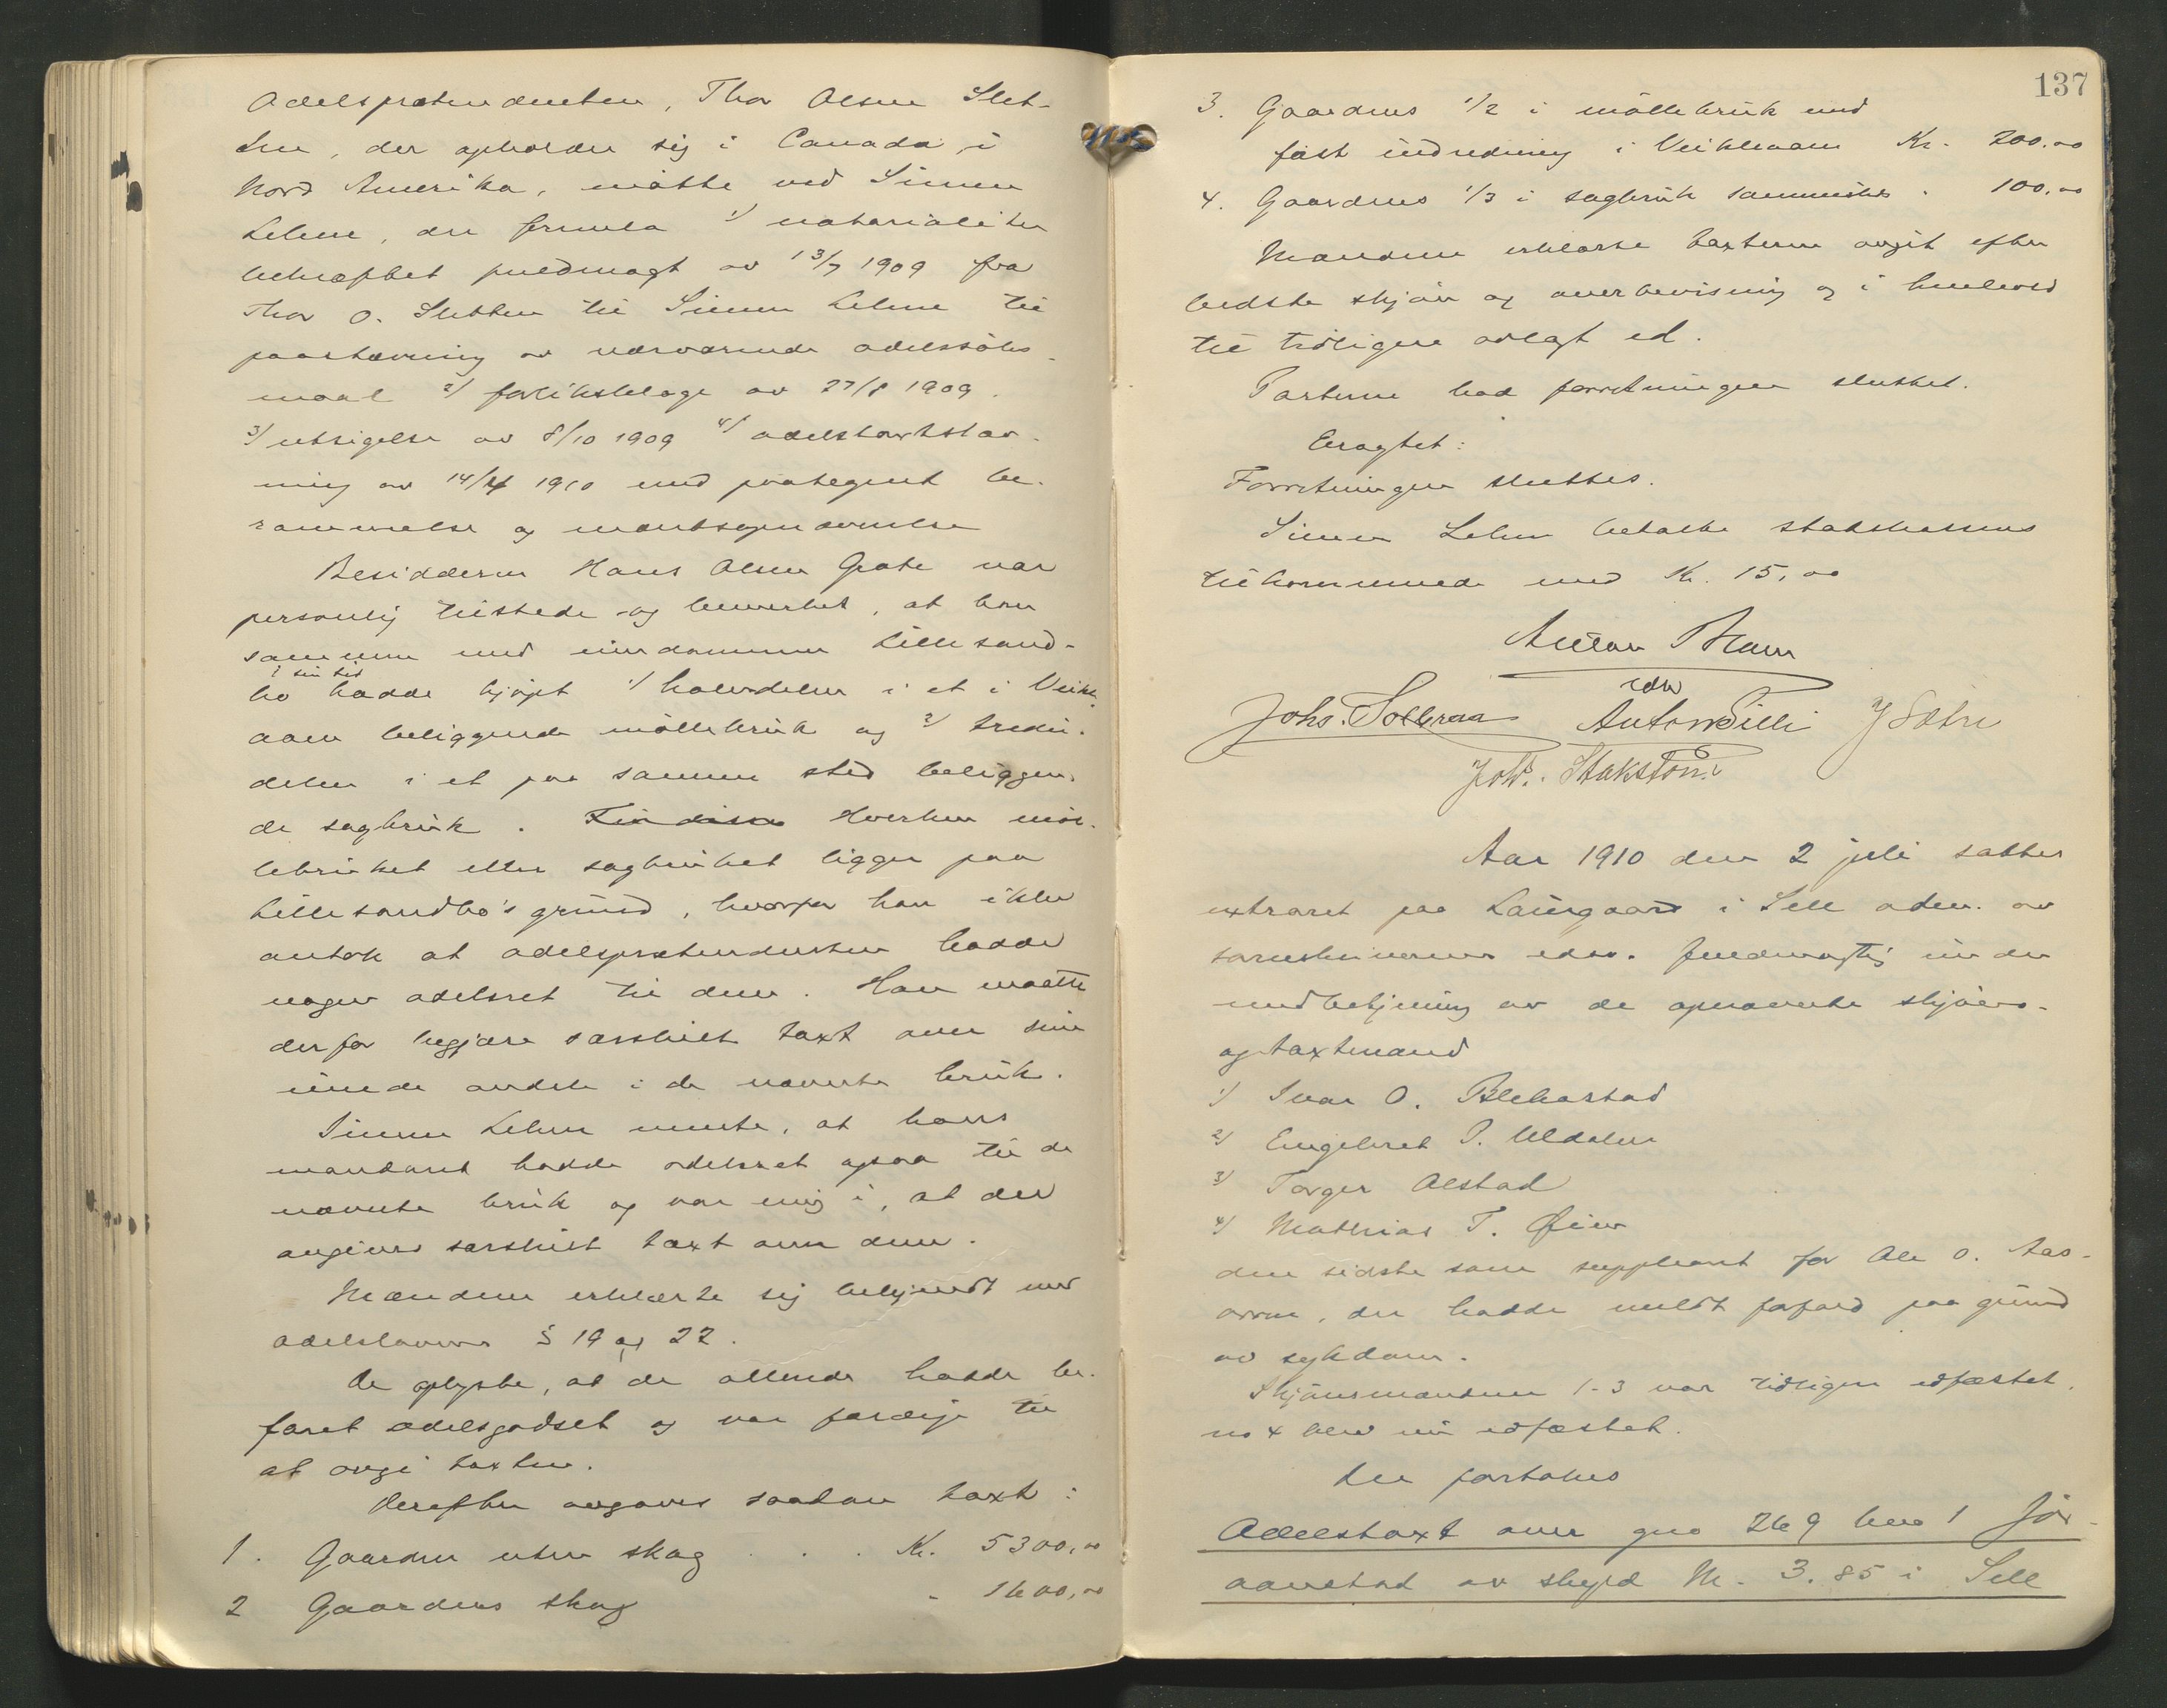 Odelsprætendenten, Thor Olsen Slet-
ten, der opholder sig i Canada i
Nord Amerika, møtte ved Simen
Lehne, der fremla 1/ notarialiter
bekræftet fuldmagt av 13/7 1909 fra
Thor O. Sletten til Simen Lehne til
paastævning av nærværende odelssøks-
maal 2/ forliksklage av 27/8 1909.
3/ utsigelse av 8/10 1909 4/ odelstaxtstæv-
ning av 14/4 1910 med paategnet be-
rammelse og mændsopnævnelse
Besidderen Hans Olsen Grote var
personlig tilstede og bemerket, at han
sammen med eiendommen Lillesand-
bo i sin tid hadde kjøpt 1/ halvdelen i et i Veikle-
aaen beliggende møllebruk og 2/ tredie-
delen i et paa samme sted beliggen-
de sagbruk. Hverken møl-
lebruket eller sagbruket ligger paa
Lillesandbo's grund, hvorfor han ikke
antok at odelsprætendenten hadde
nogen odelsret til dem. Han maatte
derfor begjære særskilt taxt over sine
eiende andele i de nævnte bruk.
Simen Lehne mente, at hans
mandant hadde odelsret ogsaa til de
nævnte bruk og var enig i, at der
avgives særskilt taxt over dem.
Mændene erklærte sig bekjendt med
odelslovens § 19 og 22.
De oplyste, at de allerede hadde be-
faret odelsgodset og var færdige til
at avgi taxten.
Derefter avgaves saadan taxt:
1. Gaarden uten skog . . . Kr. 5300,00
2 Gaardens skog - 1600,00
137
3. Gaardens 1/2 i møllebruk med
fast indredning i Veikleaaen Kr. 200.00
4. Gaardens 1/3 i sagbruk sammesteds - 100,00
Mændene erklærte taxterne avgit efter
bedste skjøn og overbevisning og i henhold
til tidligere avlagt ed.
Parterne bad forretningen sluttet.
Eragtet:
Forretningen sluttes.
Simen Lehne betalte statskassens
tilkommende med Kr. 15,00
edsv
Johs. Solbraa Anton Silli J Sætre
Joh. Stakston
Aar 1910 den 2 juli sattes
extraret paa Laurgaard i Sell adm. av
sorenskriverens edsv. fuldmægtig under
medbetjening av de opnævnte skjøns-
og taxtmænd
1/ Ivar O. Blekastad
2/ Engebret P. Uldalen
3/ Torger Olstad
4/ Mathias T. Øien
den sidste som suppleant for Ole O. Aas-
aaren, der hadde meldt forfald paa grund
av sykdom.
Skjønsmændene 1-3 var tidligere edfæstet,
no 4 blev nu edfæstet.
Der foretokes
Odelstaxt over gno 269 bno 1 Jør-
aanstad av skyld M. 3.85 i Sell